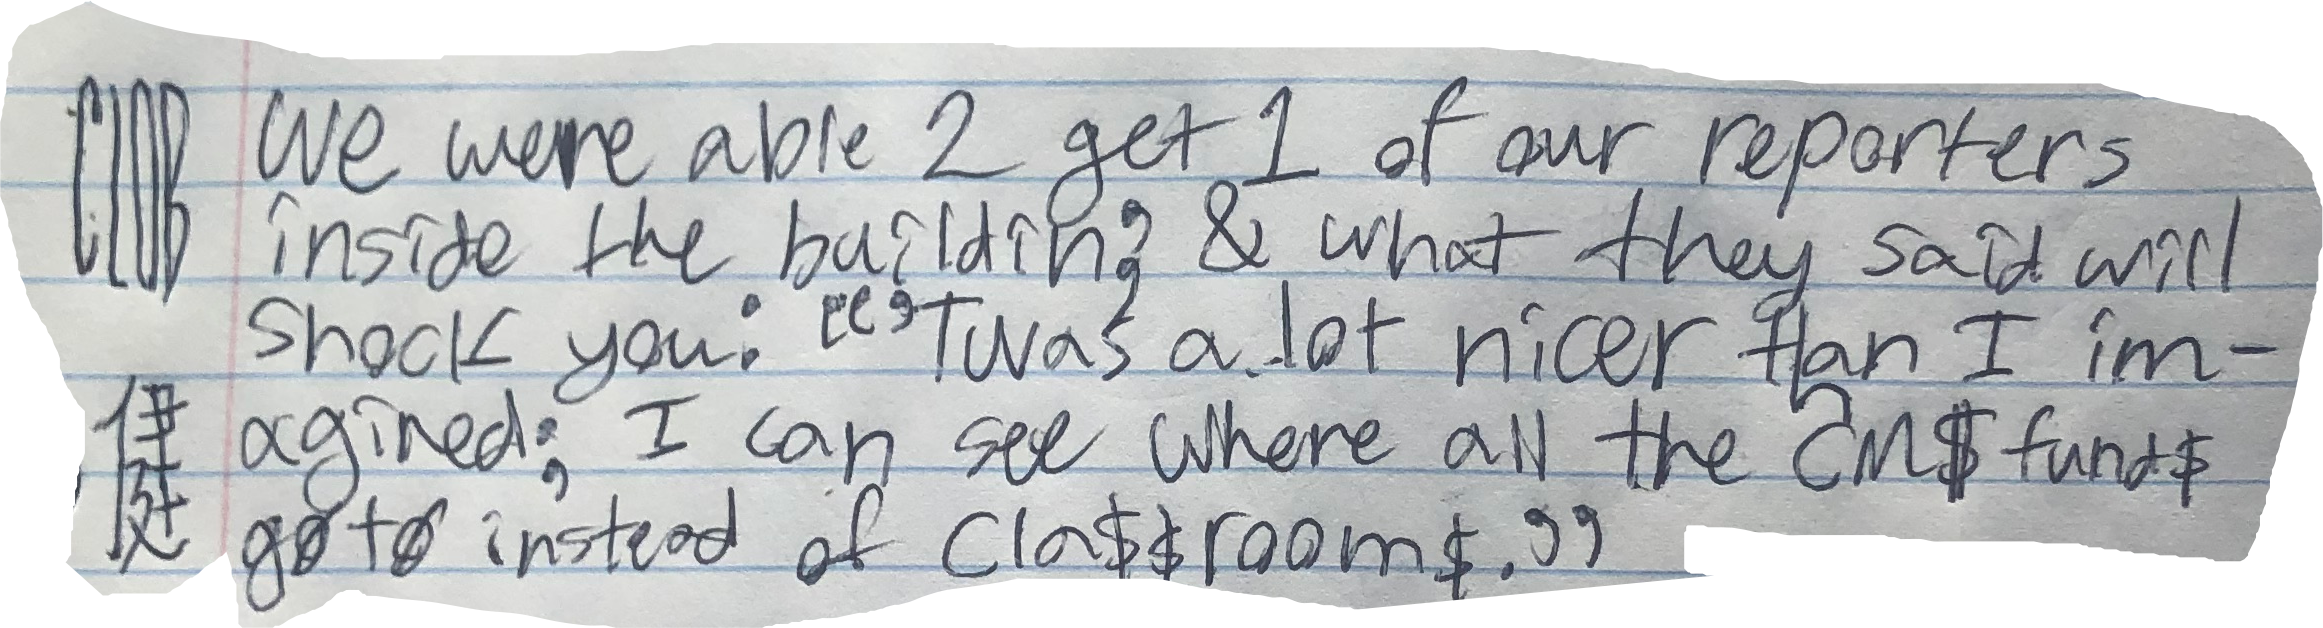 CLOB We were able 2 get 1 of our reporters
inside the building & what they said will
shock you: “’Twas a lot nicer than I im-
agined; I can see where all the CM$ fund$
go to instead of Cla$$room$.”